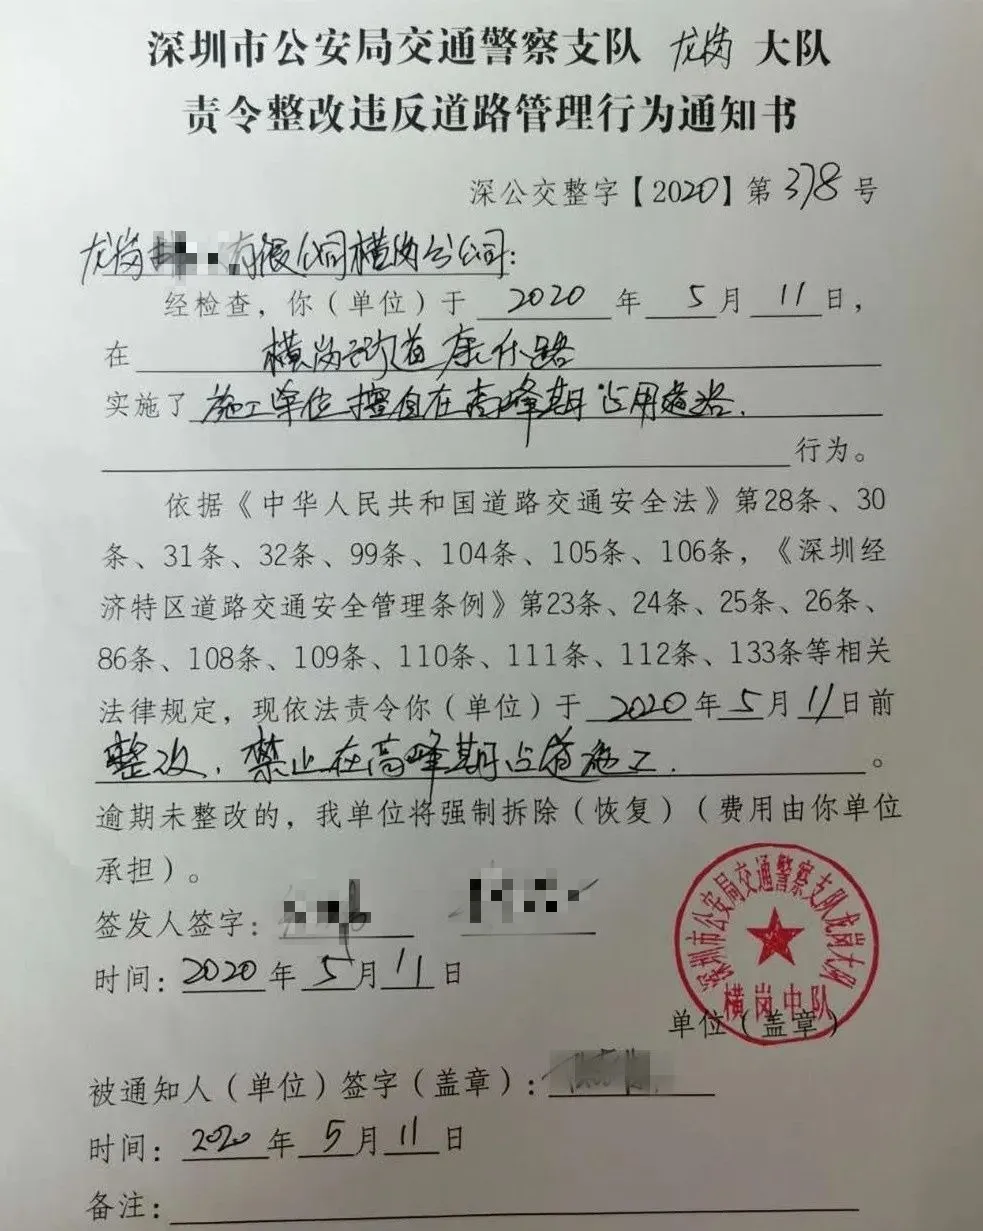 深圳市公安局交通警察支队 龙岗 大队
责令整改违反道路管理行为通知书
深公交整字【2020】第378号
龙岗 有限公司横岗分公司:
经检查，你（单位）于 2020 年 5 月 11 日，
在 横岗街道康乐路
实施了 施工单位擅自在高峰期占用道路.
行为。
依据《中华人民共和国道路交通安全法》第28条、30
条、31条、32条、99条、104条、105条、106条，《深圳经
济特区道路交通安全管理条例》第23条、24条、25条、26条、
86条、108条、109条、110条、111条、112条、133条等相关
法律规定，现依法责令你（单位）于 2020 年 5 月 11 日前
整改，禁止在高峰期占道施工. 。
逾期未整改的，我单位将强制拆除（恢复）（费用由你单位
承担）。
签发人签字:
时间: 2020 年 5 月 11 日
深圳市公安局交通警察支队龙岗大队
横岗中队
单位（盖章）
被通知人（单位）签字（盖章）:
时间: 2020 年 5 月 11 日
备注: